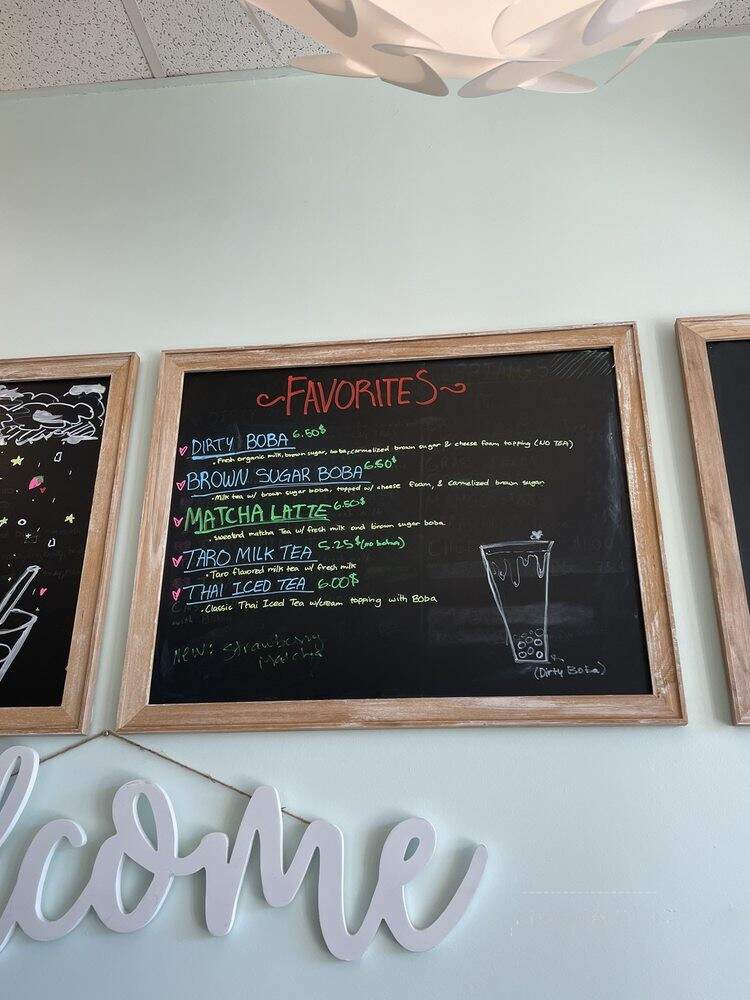 ~FAVORITES~
DIRTY BOBA 6.50$
• Fresh organic milk, brown sugar, boba, carmelized brown sugar & cheese foam topping (NO TEA)
BROWN SUGAR BOBA 6.50$
• Milk tea w/ brown sugar boba, topped w/ cheese foam, & carmelized brown sugar
MATCHA LATTE 6.50$
• sweetend matcha Tea w/ fresh milk and brown sugar boba
TARO MILK TEA 5.25$ (no boba)
• Taro flavored milk tea w/ fresh milk
THAI ICED TEA 6.00$
• Classic Thai Iced Tea w/cream topping with Boba
New: Strawberry
Matcha
(Dirty Boba)
lcome